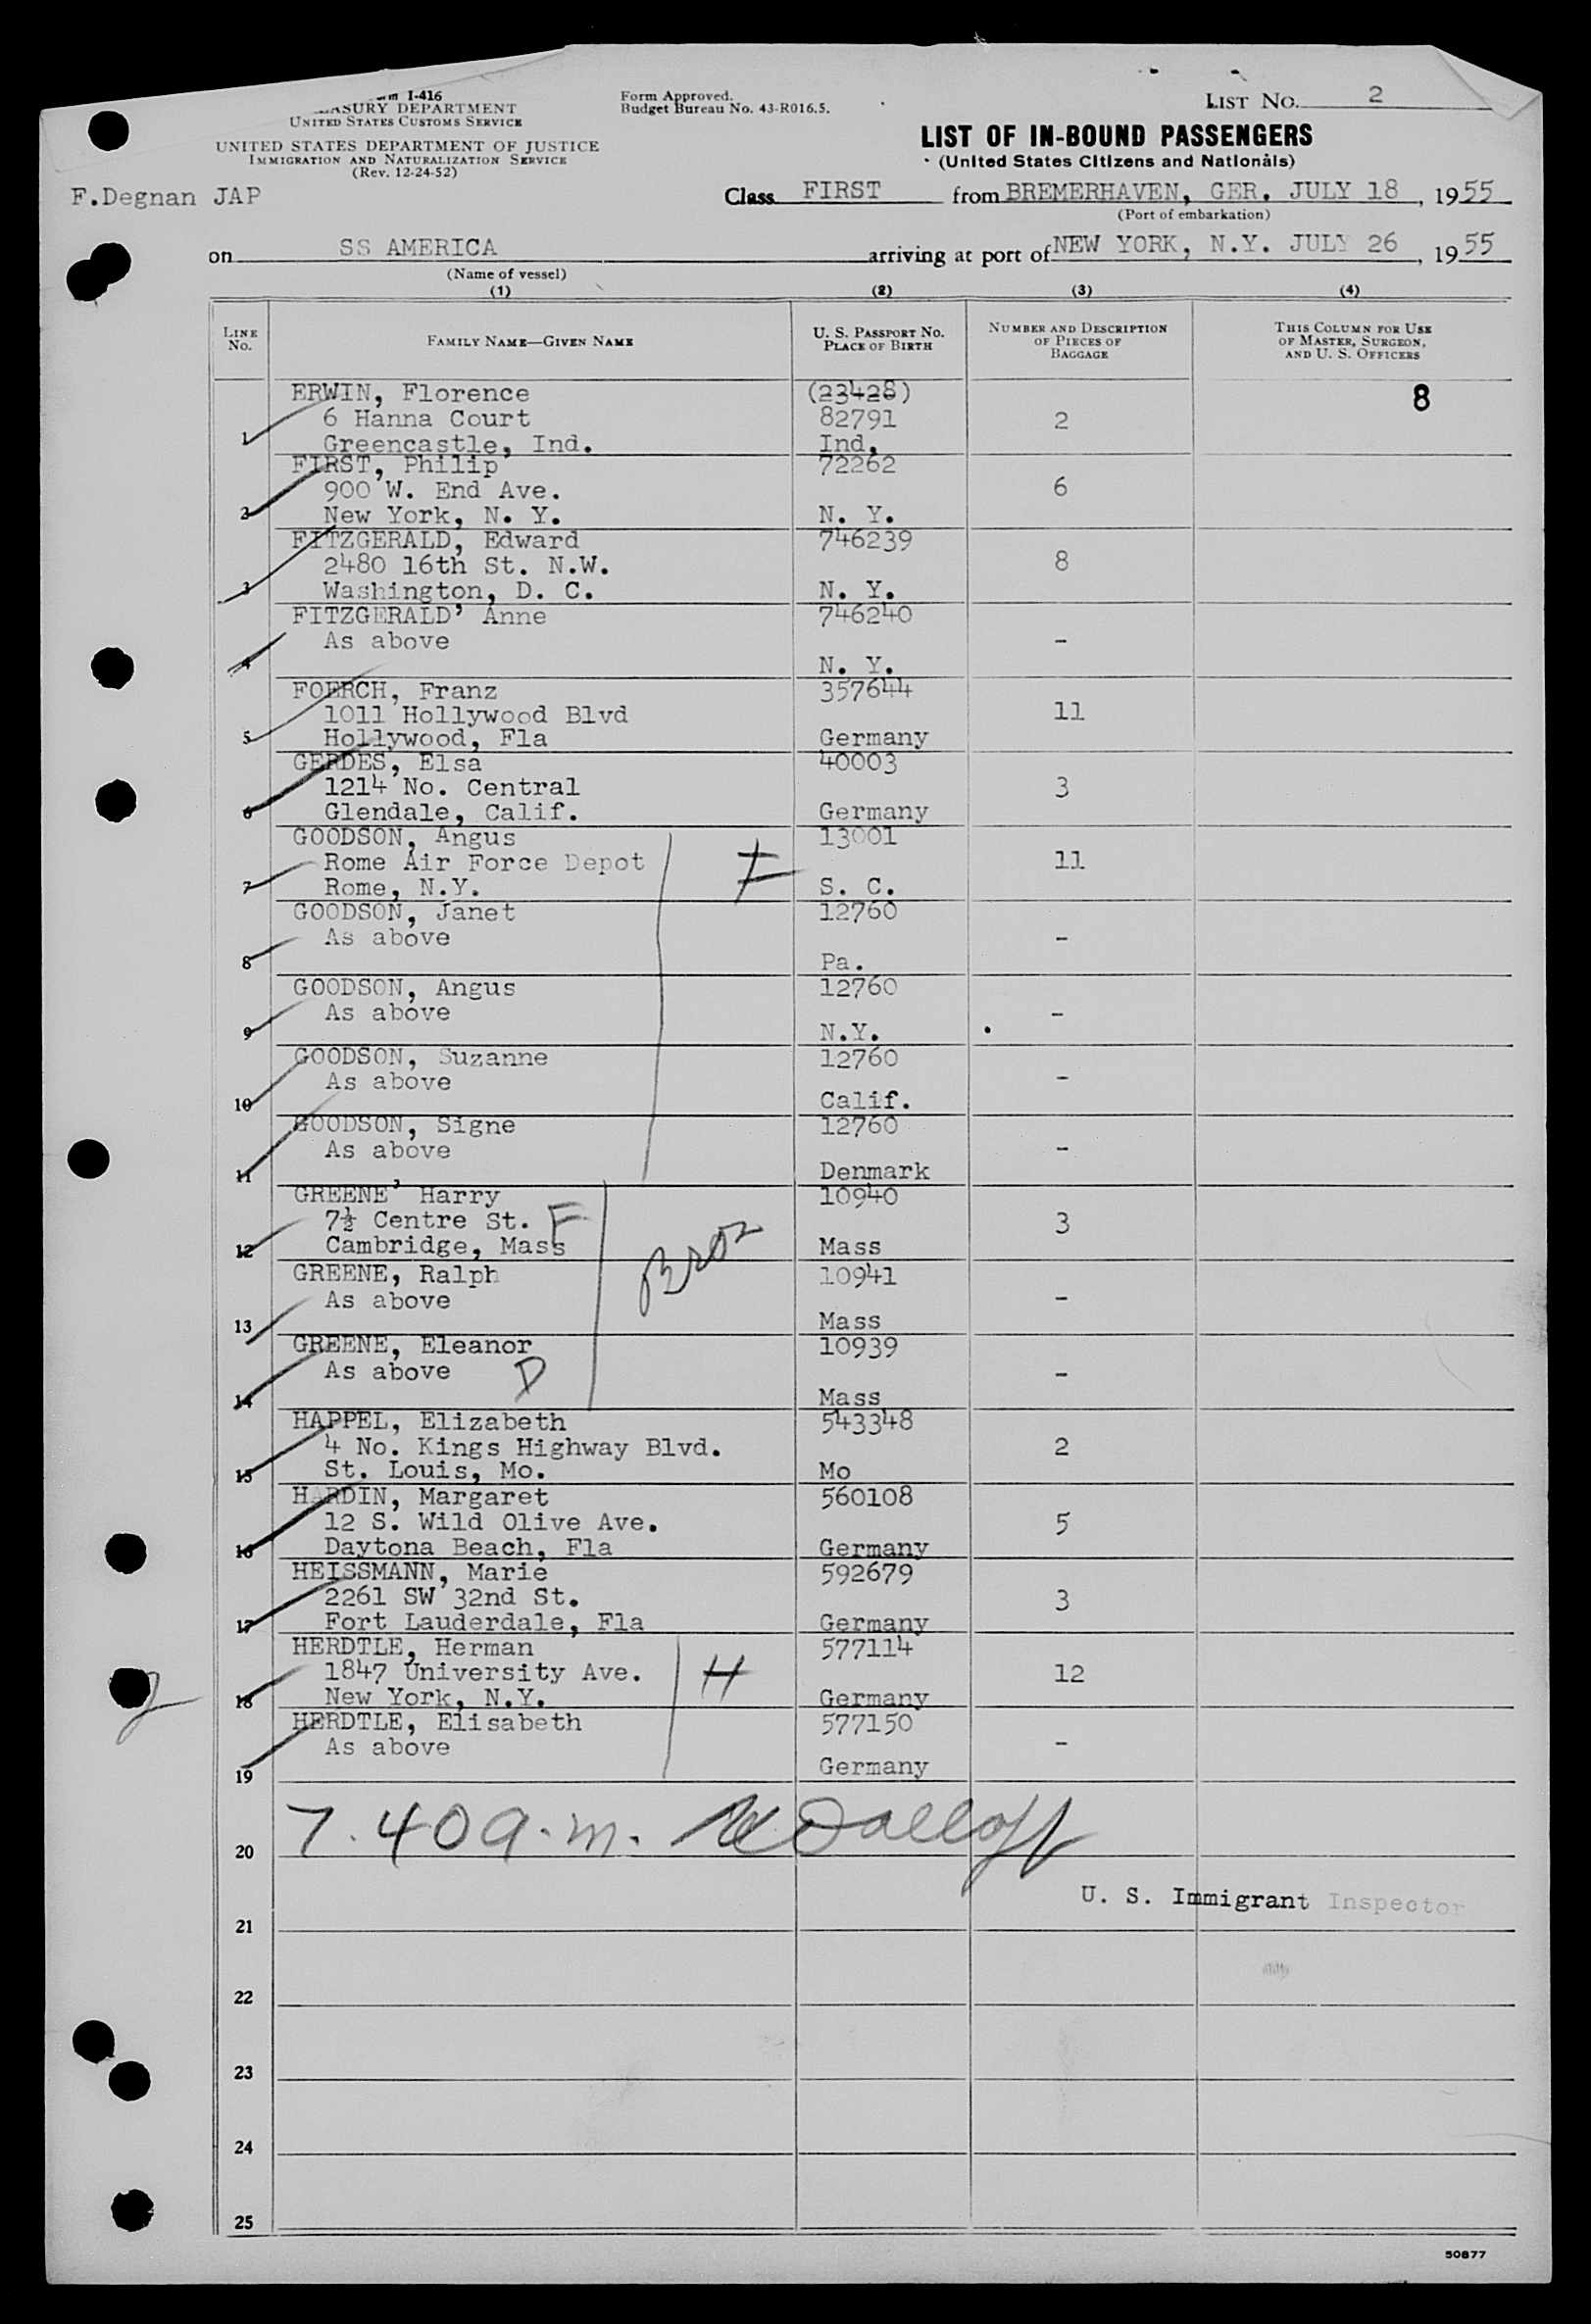 I-416
TREASURY DEPARTMENT
UNITED STATES CUSTOMS SERVICE
UNITED STATES DEPARTMENT OF JUSTICE
IMMIGRATION AND NATURALIZATION SERVICE
(Rev. 12-24-52)
Form Approved.
Budget Bureau No. 43-R016.5.
LIST NO. 2
LIST OF IN-BOUND PASSENGERS
(United States Citizens and Nationals)
F.Degnan JAP
Class FIRST from BREMERHAVEN, GER. JULY 18, 1955
(Port of embarkation)
on SS AMERICA arriving at port of NEW YORK, N.Y. JULY 26, 1955
(Name of vessel)
(1) (2) (3) (4)
LINE NO. FAMILY NAME—GIVEN NAME U. S. PASSPORT NO. PLACE OF BIRTH NUMBER AND DESCRIPTION OF PIECES OF BAGGAGE THIS COLUMN FOR USE OF MASTER, SURGEON, AND U. S. OFFICERS
ERWIN, Florence (23428) 8
6 Hanna Court 82791 2
1 Greencastle, Ind. Ind.
FIRST, Philip 72262
900 W. End Ave. 6
2 New York, N. Y. N. Y.
FITZGERALD, Edward 746239
2480 16th St. N.W. 8
3 Washington, D. C. N. Y.
FITZGERALD, Anne 746240
As above -
4 N. Y.
FOERCH, Franz 357644
1011 Hollywood Blvd 11
5 Hollywood, Fla Germany
GERDES, Elsa 40003
1214 No. Central 3
6 Glendale, Calif. Germany
GOODSON, Angus 13001
Rome Air Force Depot 11
7 Rome, N.Y. S. C.
GOODSON, Janet 12760
As above -
8 Pa.
GOODSON, Angus 12760
As above -
9 N.Y.
GOODSON, Suzanne 12760
As above -
10 Calif.
GOODSON, Signe 12760
As above -
11 Denmark
GREENE, Harry 10940
7½ Centre St. F 3
12 Cambridge, Mass Mass
GREENE, Ralph 10941
As above -
13 Mass
GREENE, Eleanor 10939
As above D -
14 Mass
HAPPEL, Elizabeth 543348
4 No. Kings Highway Blvd. 2
15 St. Louis, Mo. Mo
HARDIN, Margaret 560108
12 S. Wild Olive Ave. 5
16 Daytona Beach, Fla Germany
HEISSMANN, Marie 592679
2261 SW 32nd St. 3
17 Fort Lauderdale, Fla Germany
HERDTLE, Herman 577114
1847 University Ave. H 12
18 New York, N.Y. Germany
HERDTLE, Elisabeth 577150
As above -
19 Germany
20 7.40 a.m.
U. S. Immigrant Inspector
21
22
23
24
25
50877